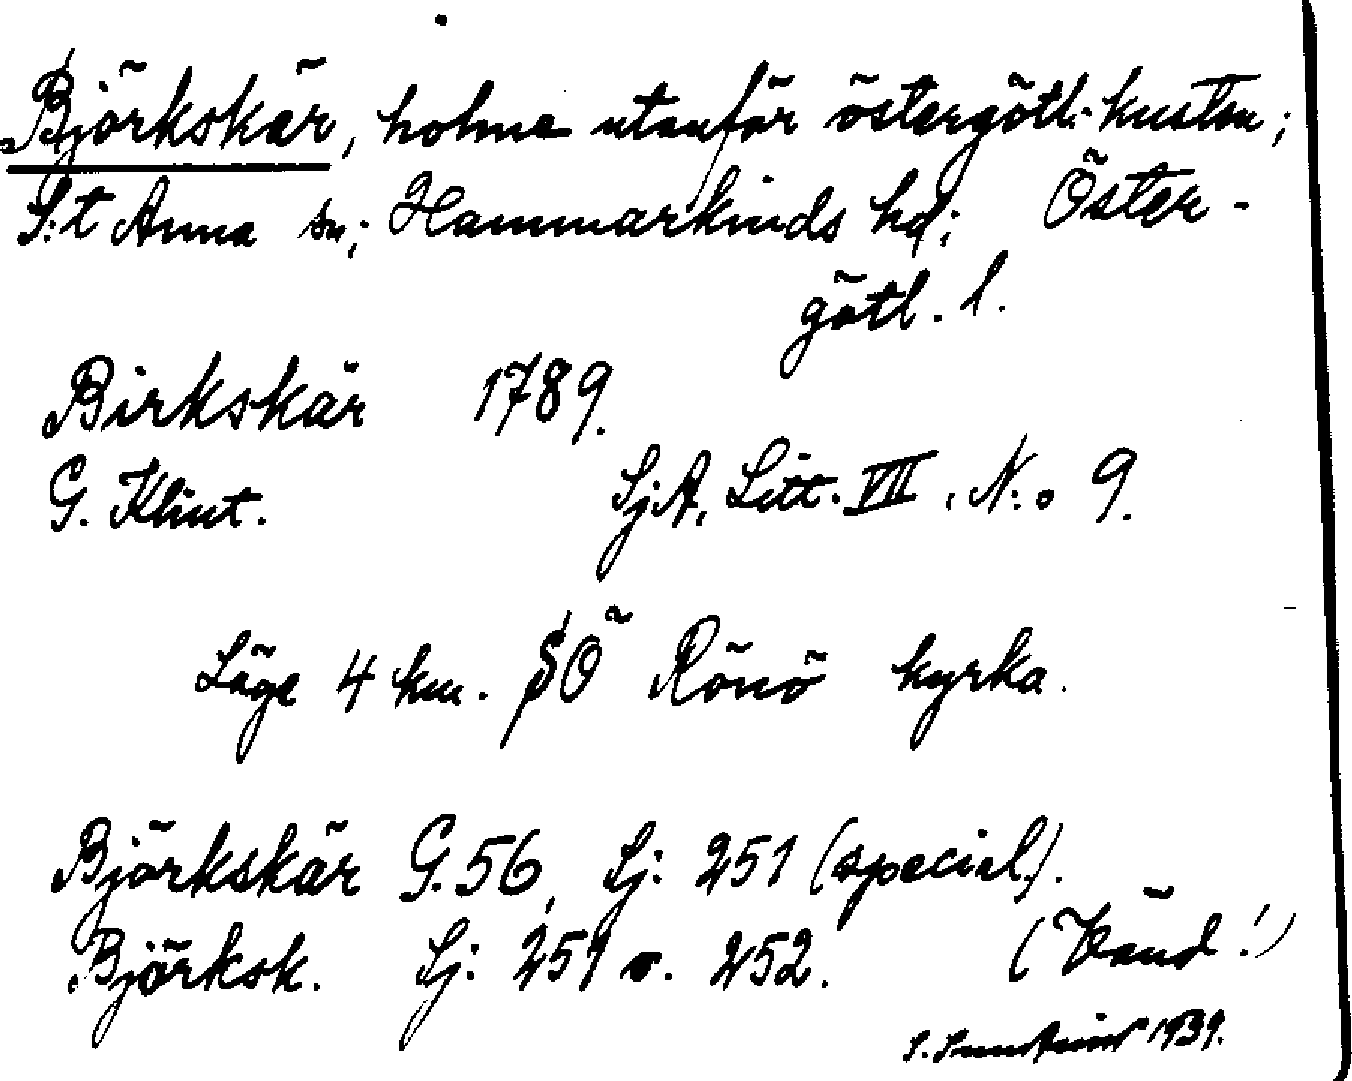 Björkskär, holme utanför östergötl. kusten;
S:t Anna sn; Hammarkinds hd; Öster-
götl. l.
Birkskär 1789.
G. Klint. SjA, Litt. VII, N:o 9.
Läge 4 km. SÖ Rönö kyrka.
Björkskär G. 56, Sj: 251 (special).
Björksk. Sj: 251 o. 252. (Vänd!)
S. 1939.